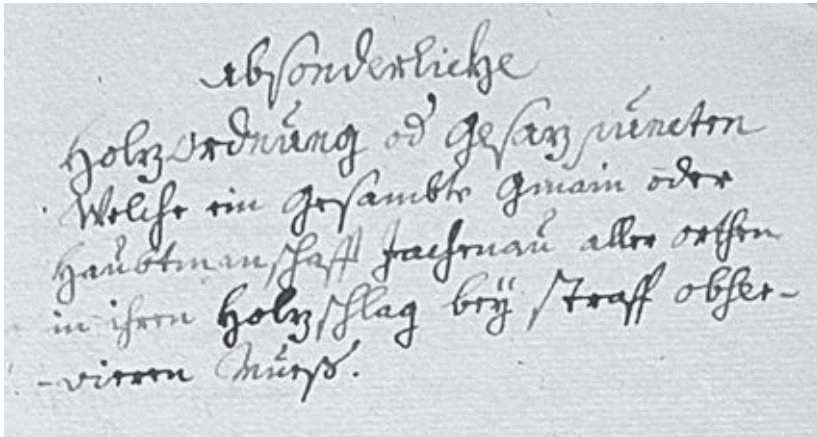 Absonderliche
Holzordnung od Gesaz puncten
Welche ein Gesambte Gmain oder
Haubtmanschafft Jachenau aller orthen
in ihren Holzschlag beÿ straff obser-
-vieren Mueß.